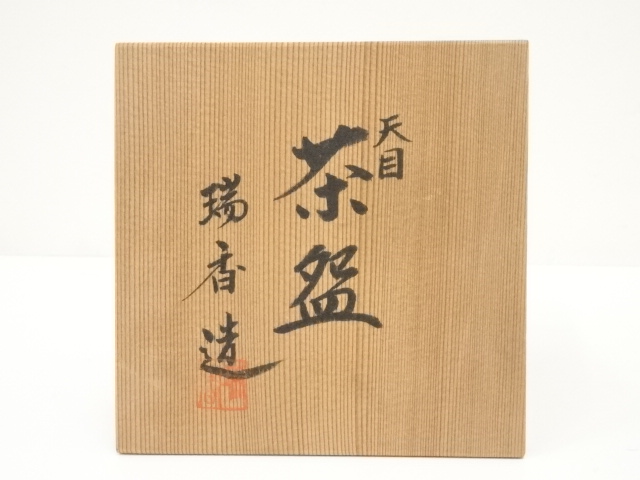 天目
茶盌
瑞香造